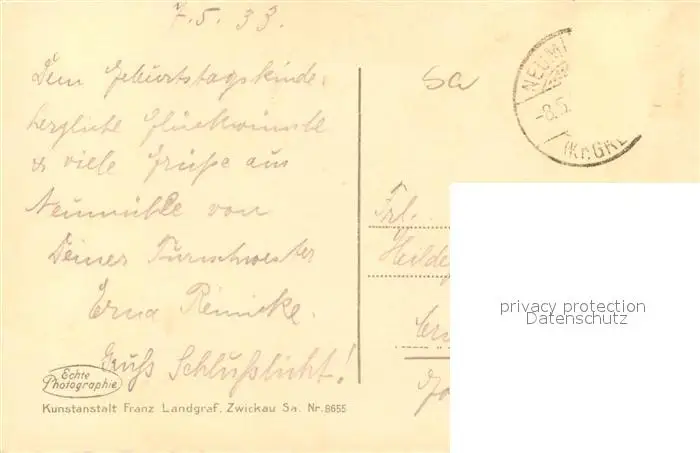 7.5.33.
Dem Geburtstagskinde
herzliche Glückwünsche
& viele Grüße aus
Neumühle von
Deiner Turnschwester
Erna Reinicke.
Gruß Schlußlicht!
Echte
Photographie
Kunstanstalt Franz Landgraf, Zwickau Sa. Nr. 8655
Sa
NEUM
-8.5
(KRGRE
Frl.
privacy protection
Datenschutz